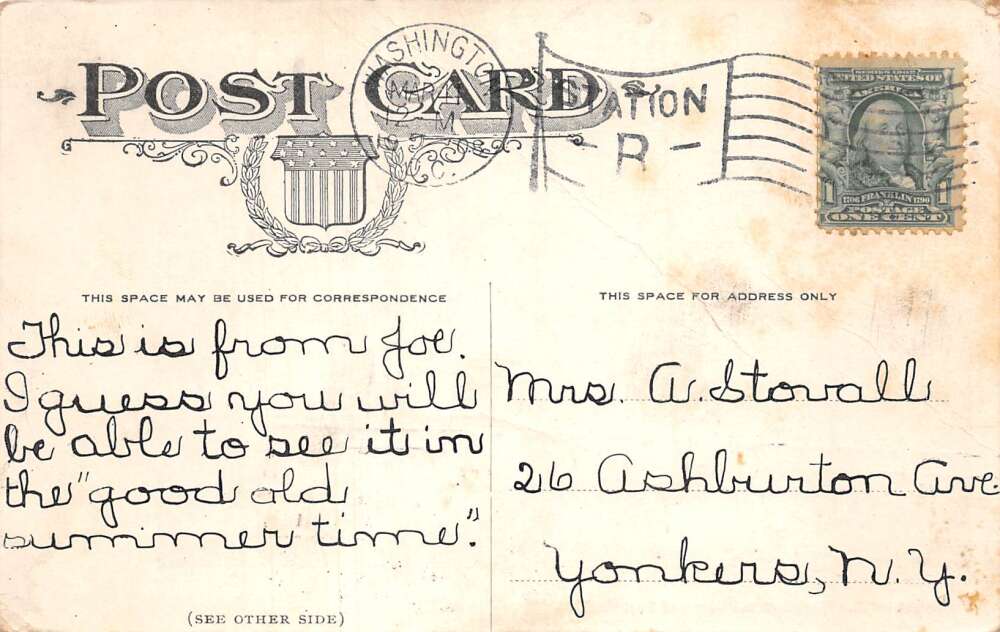 POST CARD
WASHINGTON
MAR
M
08
D.C.
STATION
R
SERIES 1902
UNITED STATES OF
AMERICA
1 1
1706 FRANKLIN 1790
POSTAGE
ONE CENT
THIS SPACE MAY BE USED FOR CORRESPONDENCE
This is from Joe.
I guess you will
be able to see it in
the "good old
summer time".
(SEE OTHER SIDE)
THIS SPACE FOR ADDRESS ONLY
Mrs. A. Stovall
26 Ashburton Ave
Yonkers, N. Y.